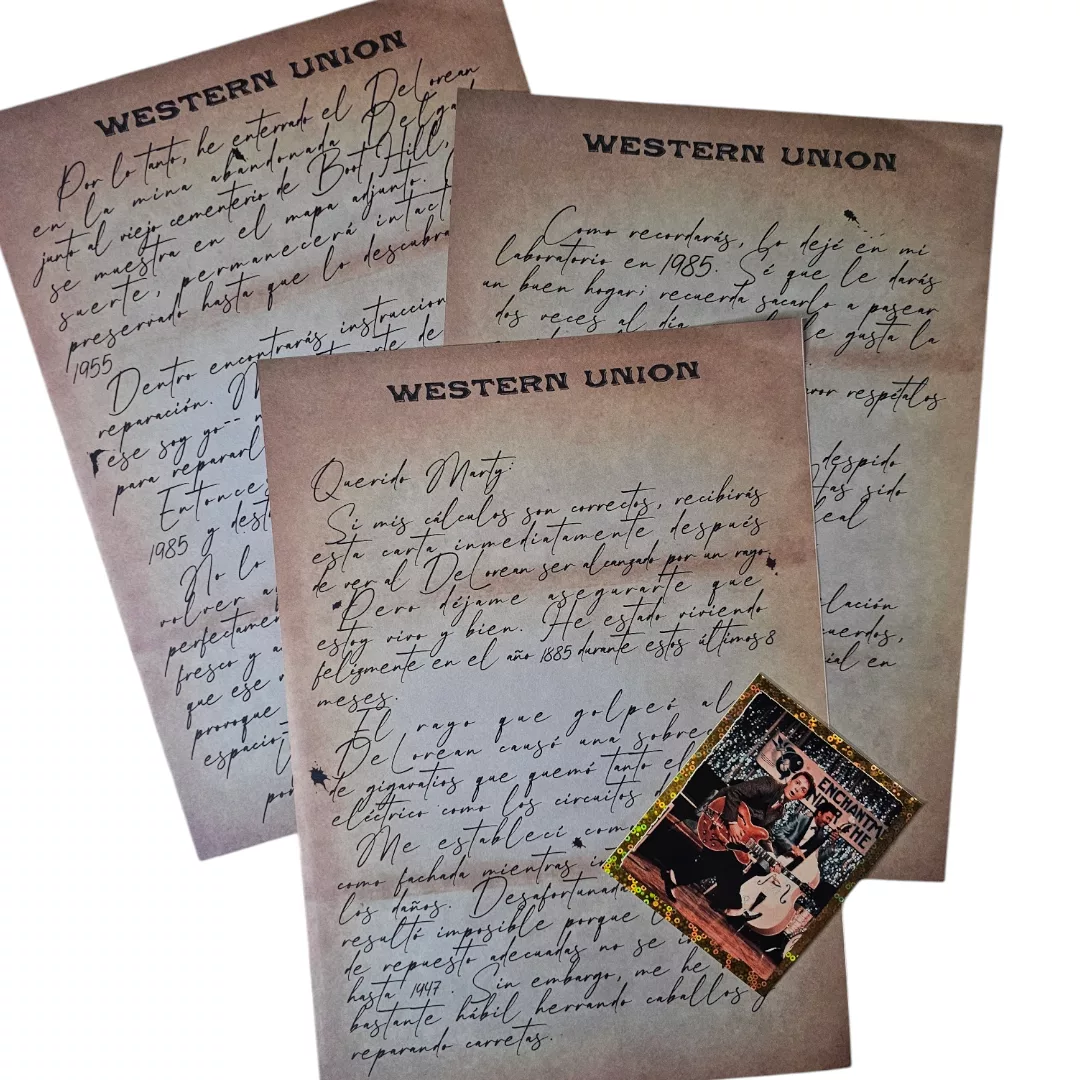 WESTERN UNION
Por lo tanto, he enterrado el DeLorean
en la mina abandonada Delgad
junto al viejo cementerio de Boot Hill,
se muestra en el mapa adjunto.
suerte, permanecerá intact
preservado hasta que lo descubra
1955
Dentro encontrarás instruccion
reparación.
ese soy yo--
para repararl
Entonces
1985 y dest
No lo
volver a
perfectamen
fresco y a
que ese
provoque
espacio
WESTERN UNION
Como recordarás, Lo dejé en mi
laboratorio en 1985. Sé que le darás
un buen hogar; recuerda sacarlo a pasear
dos veces al día
le gusta la
respétalos
despido
has sido
leal
uerdos,
ial en
WESTERN UNION
Querido Marty:
Si mis cálculos son correctos, recibirás
esta carta inmediatamente después
de ver al DeLorean ser alcanzado por un rayo.
Pero déjame asegurarte que
estoy vivo y bien. He estado viviendo
felizmente en el año 1885 durante estos últimos 8
meses.
El rayo que golpeó al
DeLorean causó una sobre
de gigavatios que quemó tanto el
eléctrico como los circuitos d
Me establecí com
como fachada mientras in
los daños. Desafortunada
resultó imposible porque l
de repuesto adecuadas no se i
hasta 1947. Sin embargo, me he
bastante hábil herrando caballos y
reparando carretas.
ENCHANTM
HE